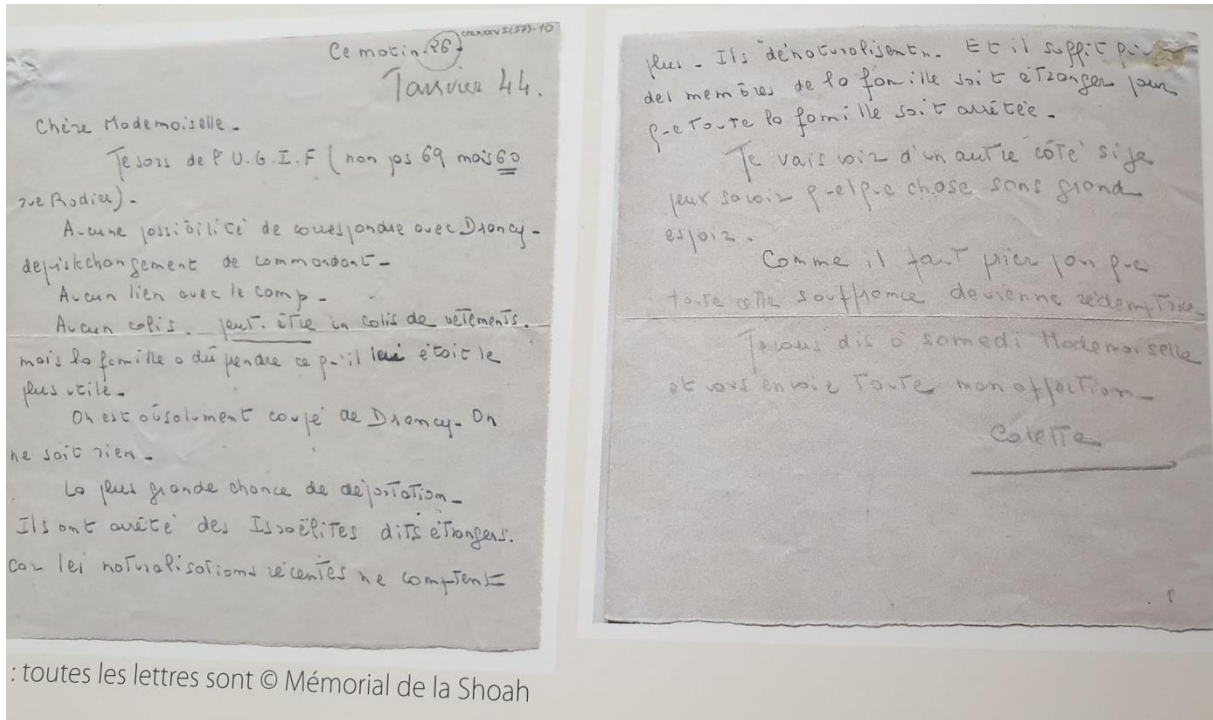 Ce matin 26
Janvier 44.
Chère Mademoiselle.
Je sors de l'U.G.I.F (non pas 69 mais 60
rue Rodier).
Aucune possibilité de correspondre avec Drancy -
depuis le changement de commandant -
Aucun lien avec le camp -
Aucun colis. peut-être un colis de vêtements.
mais la famille a dû prendre ce qu'il leur était le
plus utile -
On est absolument coupé de Drancy - On
ne sait rien -
La plus grande chance de déportation -
Ils ont arrêté des Israëlites dits étrangers.
car les naturalisations récentes ne comptent
plus - Ils "dénaturalisent". Et il suffit
des membres de la famille soit étranger pour
que toute la famille soit arrêtée -
Je vais voir d'un autre côté si je
peux savoir quelque chose sans grand
espoir.
Comme il faut prier pour que
toute cette souffrance devienne rédemptrice
Je vous dis à samedi Mademoiselle
et vous envoie toute mon affection -
Colette
: toutes les lettres sont © Mémorial de la Shoah